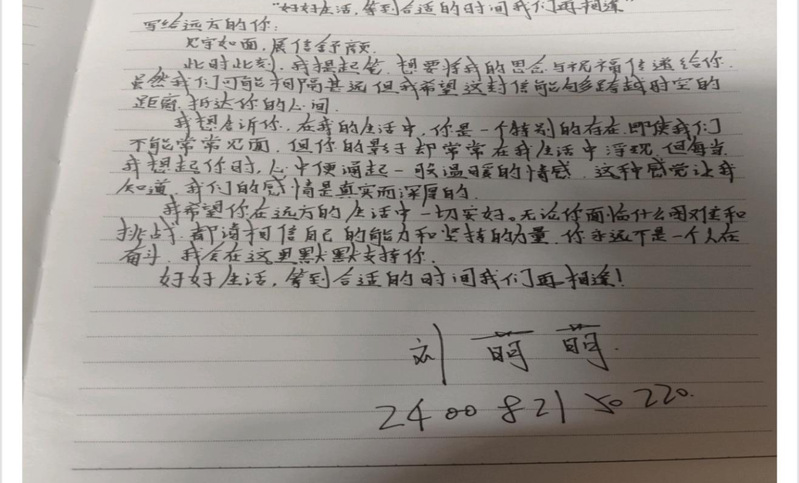 "好好生活,等到合适的时间我们再相逢"
写给远方的你:
见字如面,展信舒颜.
此时此刻,我提起笔,想要将我的思念与祝福传递给你.
虽然我们可能相隔甚远,但我希望这封信能够跨越时空的
距离,抵达你的心间.
我想告诉你,在我的生活中,你是一个特别的存在,即使我们
不能常常见面,但你的影子却常常在我生活中浮现,但每当
我想起你时,心中便涌起一股温暖的情感,这种感觉让我
知道,我们的感情是真实而深厚的.
我希望你在远方的生活中一切安好。无论你面临什么困难和
挑战,都请相信自己的能力和坚持的力量,你永远不是一个人在
奋斗,我会在这里默默支持你.
好好生活,等到合适的时间我们再相逢!
刘萌萌.
240082150220.